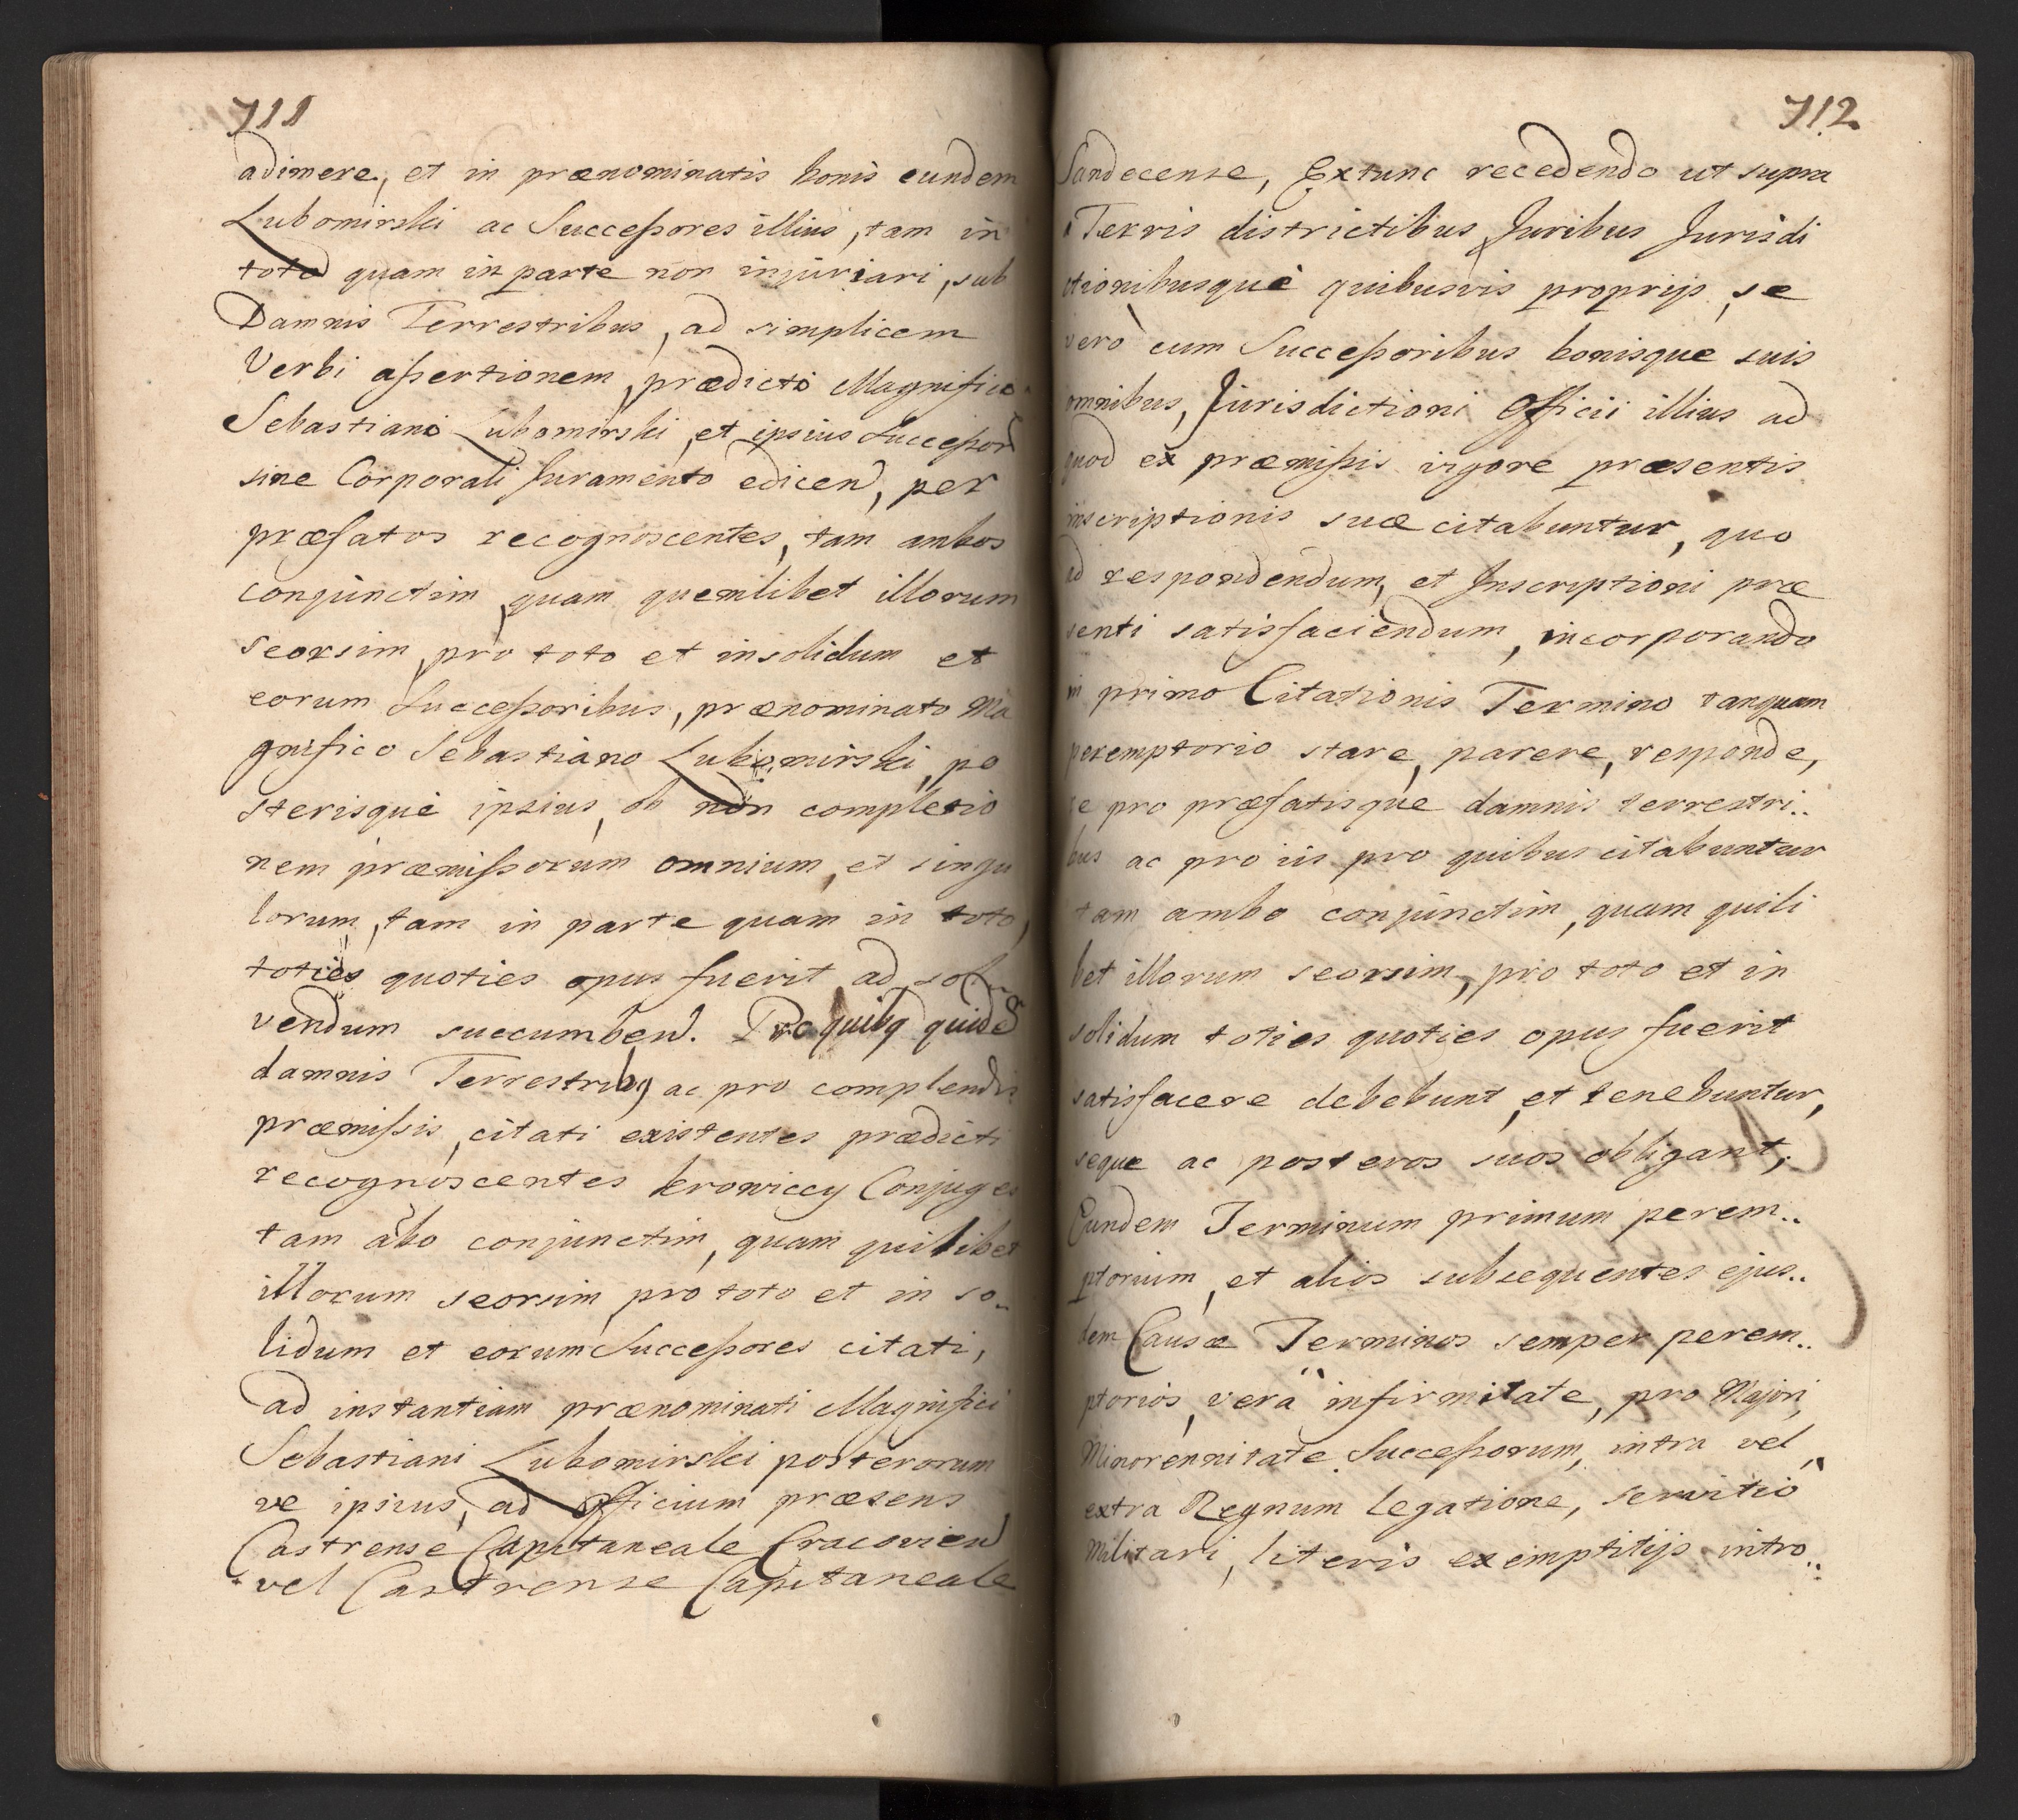 711
adimere, et in prænominatis bonis eundem
Lubomirski ac Succeßores illius, tam in
toto quam in parte non injuriari, sub
Damnis Terrestribus, ad simplicem
Verbi aßertionem, prædicti Magnifici
Sebastiani Lubomirski, et ipsius Succeßor
sine Corporali Juramento edicen, per
præfatos recognoscentes, tam ambos
conjunctim, quam quemlibet illorum
seorsim, pro toto et insolidum et
eorum Succeßoribus, prænominato Ma
gnifico Sebastiano Lubomirski, po
sterisque ipsius, ob non completio
nem præmißorum omnium, et singu
lorum, tam in parte quam in toto,
toties quoties opus fuerit ad sol
vendum succumben. Pro quibq quide
damnis Terrestribq ac pro complendis
præmißis, citati existentes prædicti
recognoscentes krowiccy Conjuges
tam ābo conjunctim, quam quilibet
illorum seorsim pro toto et in so..
lidum et eorum Succeßores citati,
ad instantiam prænominati Magnifici
Sebastiani Lubomirski posterorum
ve ipsius, ad Officium præsens
Castrense Capitaneale Cracovien
vel Castrense Capitaneale
712
Sandecense, Extunc recedendo ut supra
a Terris districtibus Juribus Jurisdi
ctionibusque quibusvis proprijs, se
vero cum Succeßoribus bonisque suis
omnibus, Jurisdictioni Officii illius ad
quod ex præmißis vigore præsentis
inscriptionis suæ citabuntur, quo
ad respondendum, et Inscriptioni præ
senti satisfaciendum, incorporando
in primo Citationis Termino tanquam
peremptorio stare, parere, responde,
re pro præfatisque damnis terrestri..
bus ac pro iis pro quibus citabuntur
tam ambo conjunctim, quam quili
bet illorum seorsim, pro toto et in
solidum toties quoties opus fuerit
satisfacere debebunt, et tenebuntur,
seque ac posteros suos obligant;
Eundem Terminum primum perem..
ptorium, et alios subsequentes ejus..
dem Causæ Terminos semper perem..
ptorios, vera infirmitate, pro Majori,
Minorennitate Succeßorum, intra vel
extra Regnum legatione, servitio
Militari, literis exemptitijs intro..